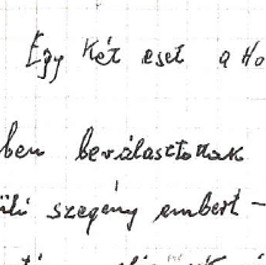 Egy két eset a Ho
ben beválasztottak
szegény embert -